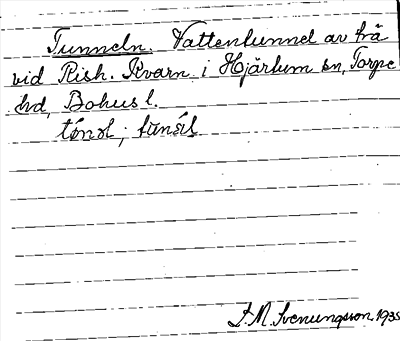 Tunneln. Vattentunnel av trä
vid Rish. Kvarn i Hjärtum sn, Torpe
hd, Bohus l.
J. M. Svenungsson. 1935